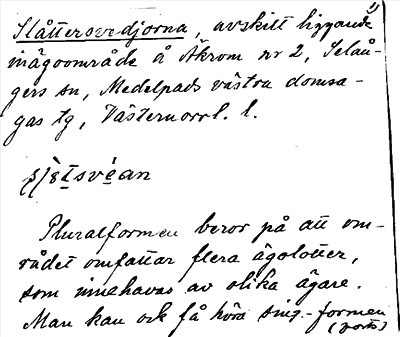 Slåttersvedjorna, avskilt liggande 1)
inägoområde å Åkrom nr 2, Selån-
gers sn, Medelpads västra domsa-
gas tg, Västernorrl. l.
Pluralformen beror på att om-
rådet omfattar flera ägolotter,
som innehavas av olika ägare.
Man kan ock få höra sing.-formen